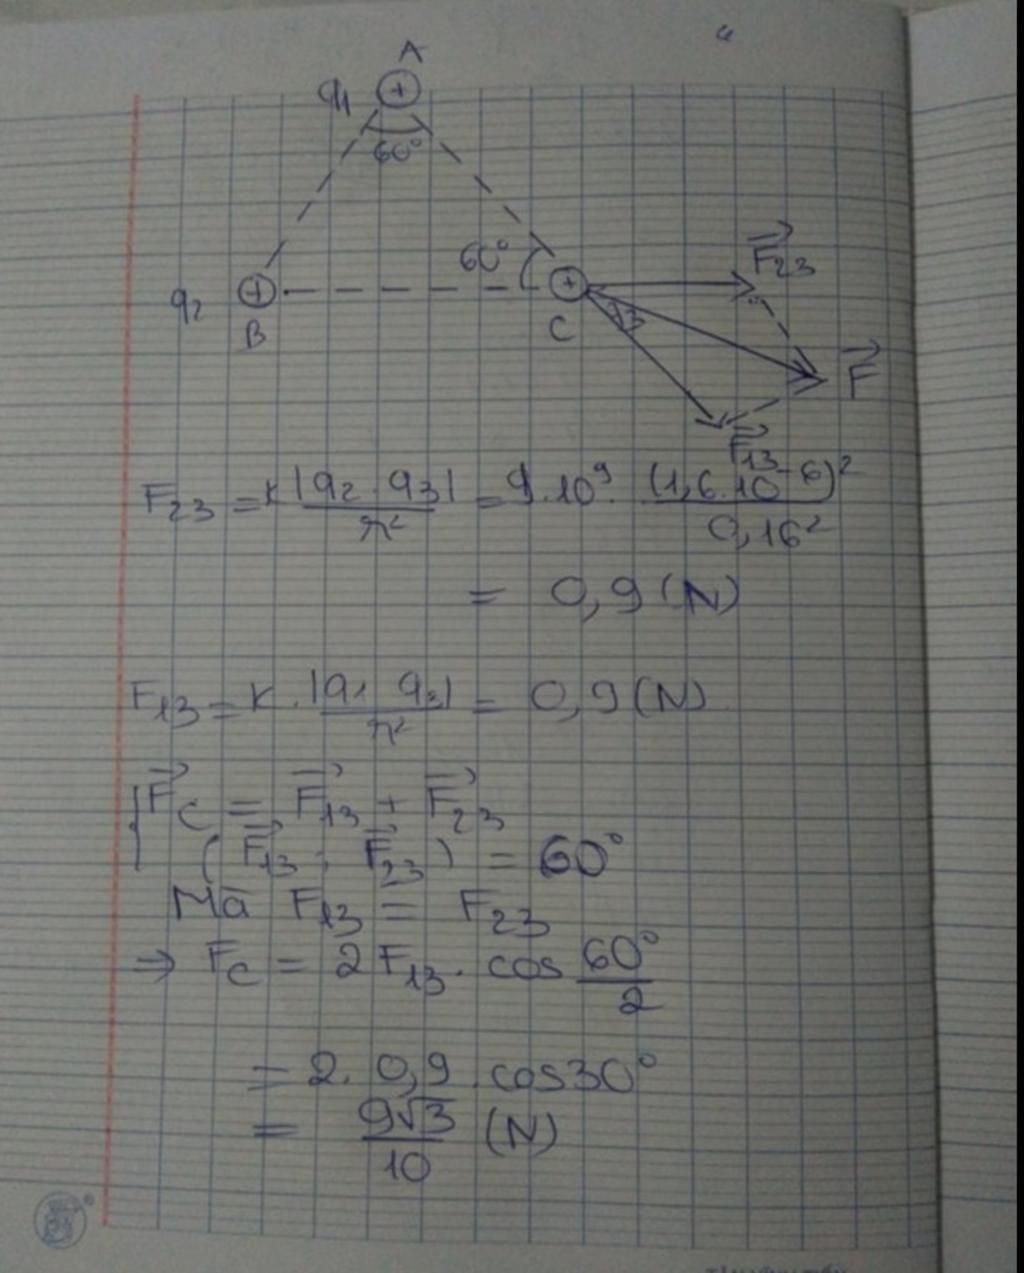 A
q₁ +
60°
60° F⃗₂₃
q₂ + +
B C F⃗
F⃗₁₃
F₂₃ = k |q₂ . q₃| / r² = 9.10⁹ . (1,6.10⁻⁶)² / 0,16²
= 0,9 (N)
F₁₃ = k . |q₁ q₃| / r² = 0,9 (N)
{ F⃗c = F⃗₁₃ + F⃗₂₃
( F⃗₁₃ ; F⃗₂₃ ) = 60°
Mà F₁₃ = F₂₃
⇒ Fc = 2 F₁₃ . cos 60° / 2
= 2. 0,9 . cos30°
= 9√3 / 10 (N)